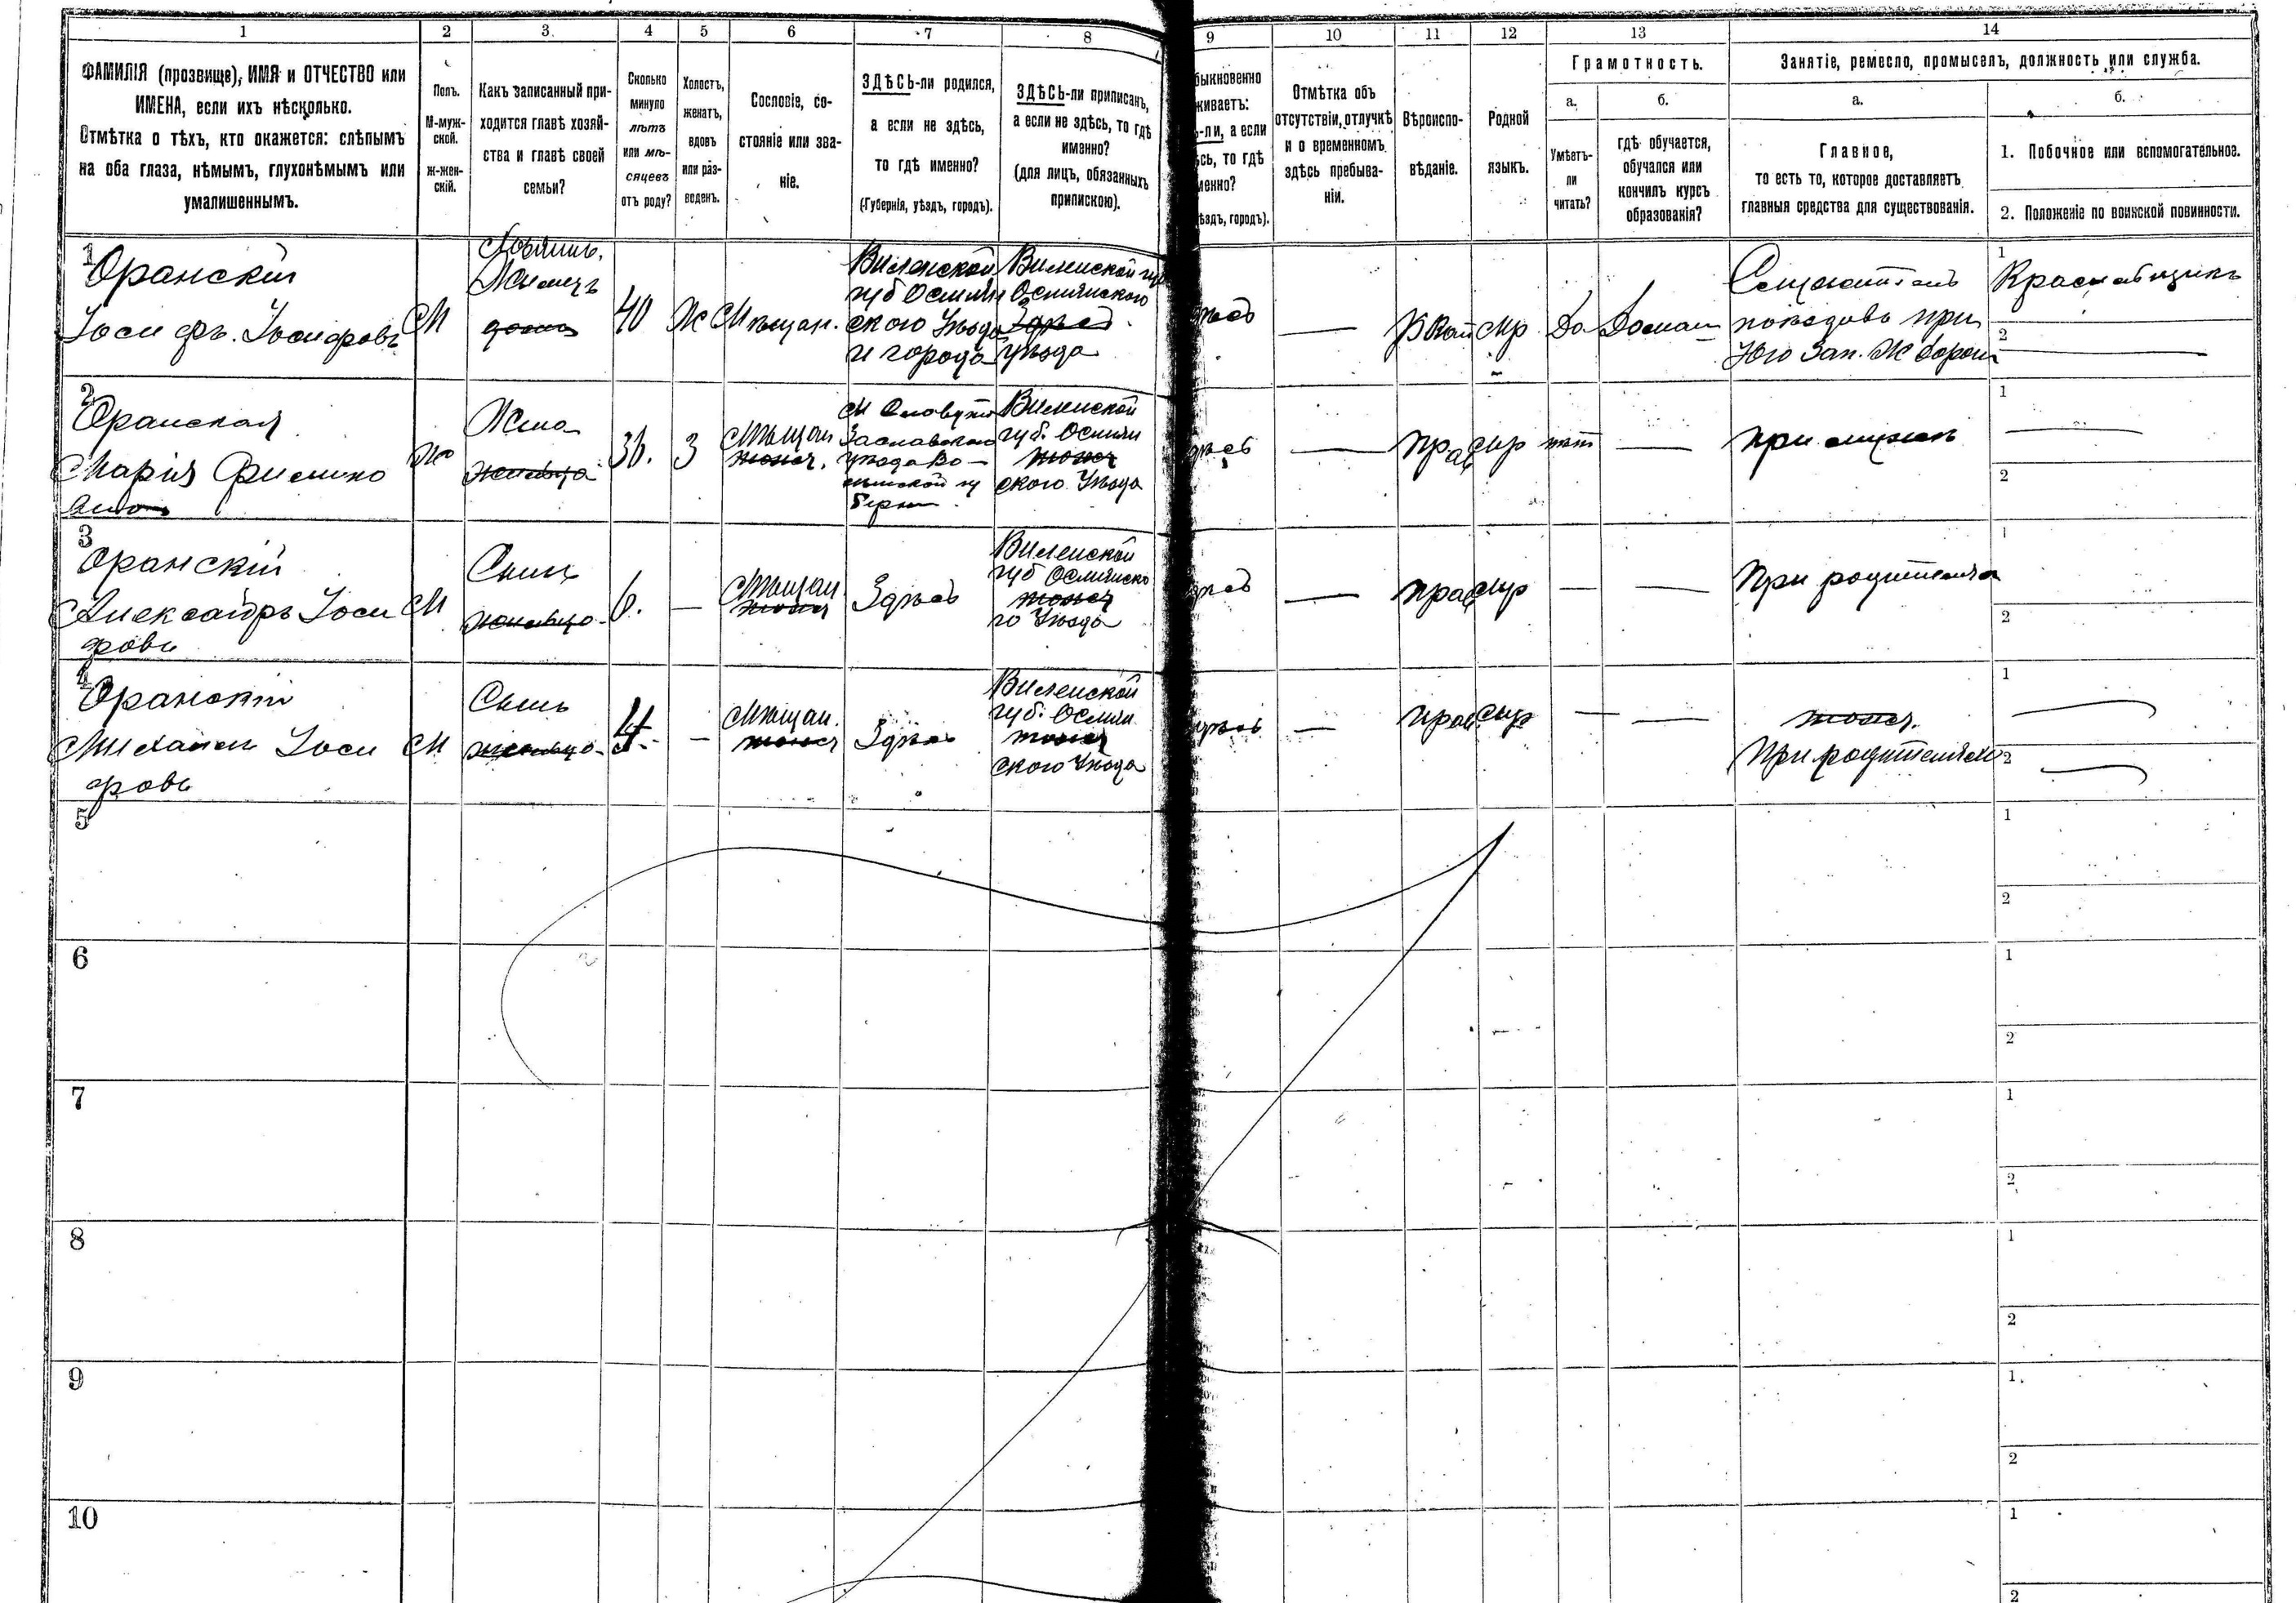 1
2
3
4
5
6
7
8
9
10
11
12
13
14
ФАМИЛІЯ (прозвище), ИМЯ и ОТЧЕСТВО или
ИМЕНА, если ихъ нѣсколько.
Отмѣтка о тѣхъ, кто окажется: слѣпымъ
на оба глаза, нѣмымъ, глухонѣмымъ или
умалишеннымъ.
Полъ.
М-муж-
ской.
Ж-жен-
скій.
Какъ записанный при-
ходится главѣ хозяй-
ства и главѣ своей
семьи?
Сколько
минуло
лѣтъ
или мѣ-
сяцевъ
отъ роду?
Холостъ,
женатъ,
вдовъ
или раз-
веденъ.
Сословіе, со-
стояніе или зва-
ніе.
ЗДѢСЬ-ли родился,
а если не здѣсь,
то гдѣ именно?
(Губернія, уѣздъ, городъ).
ЗДѢСЬ-ли приписанъ,
а если не здѣсь, то гдѣ
именно?
(для лицъ, обязанныхъ
припискою).
быкновенно
живаетъ:
ь-ли, а если
ѣсь, то гдѣ
менно?
ѣздъ, городъ).
Отмѣтка объ
отсутствіи, отлучкѣ
и о временномъ
здѣсь пребыва-
ніи.
Вѣроиспо-
вѣданіе.
Родной
языкъ.
Грамотность.
а.
б.
Умѣетъ-
ли
читать?
гдѣ обучается,
обучался или
кончилъ курсъ
образованія?
Занятіе, ремесло, промыселъ, должность или служба.
а.
б.
Главное,
то есть то, которое доставляетъ
главныя средства для существованія.
1. Побочное или вспомогательное.
2. Положеніе по воинской повинности.
1
Оранскій
Іосифъ Іосифовъ
М
40
Ж
Мѣщан.
Виленской
губ Осмян
ского Уѣзда
и города
Виленской губ
Осмянского
Здѣсь
уѣзда
Да
Домаш
поѣздовъ при
Юго Зап. Ж дорог
1
2
2
Оранская
Марія
Ж
Жена
36.
З
Мѣщан
тоже
Заславского
уѣзда Во-
Виленской
губ. Осмян
тоже
ского Уѣзда
прав
нѣт
при мужѣ
1
2
3
Оранскій
Александръ Іоси
фовъ
М
Сынъ
6.
—
Мѣщан
тоже
Здѣсь
Виленской
губ Осмянско
тоже
го Уѣзда
прав
При родителяхъ
1
2
4
Оранскій
Михаилъ Іоси
фовъ
М
Сынъ
4.
—
Мѣщан.
тоже
Здѣсь
Виленской
губ. Осмян
тоже
ского Уѣзда
прав
тоже.
При родителяхъ
1
2
5
1
2
6
1
2
7
1
2
8
1
2
9
1
2
10
1
2